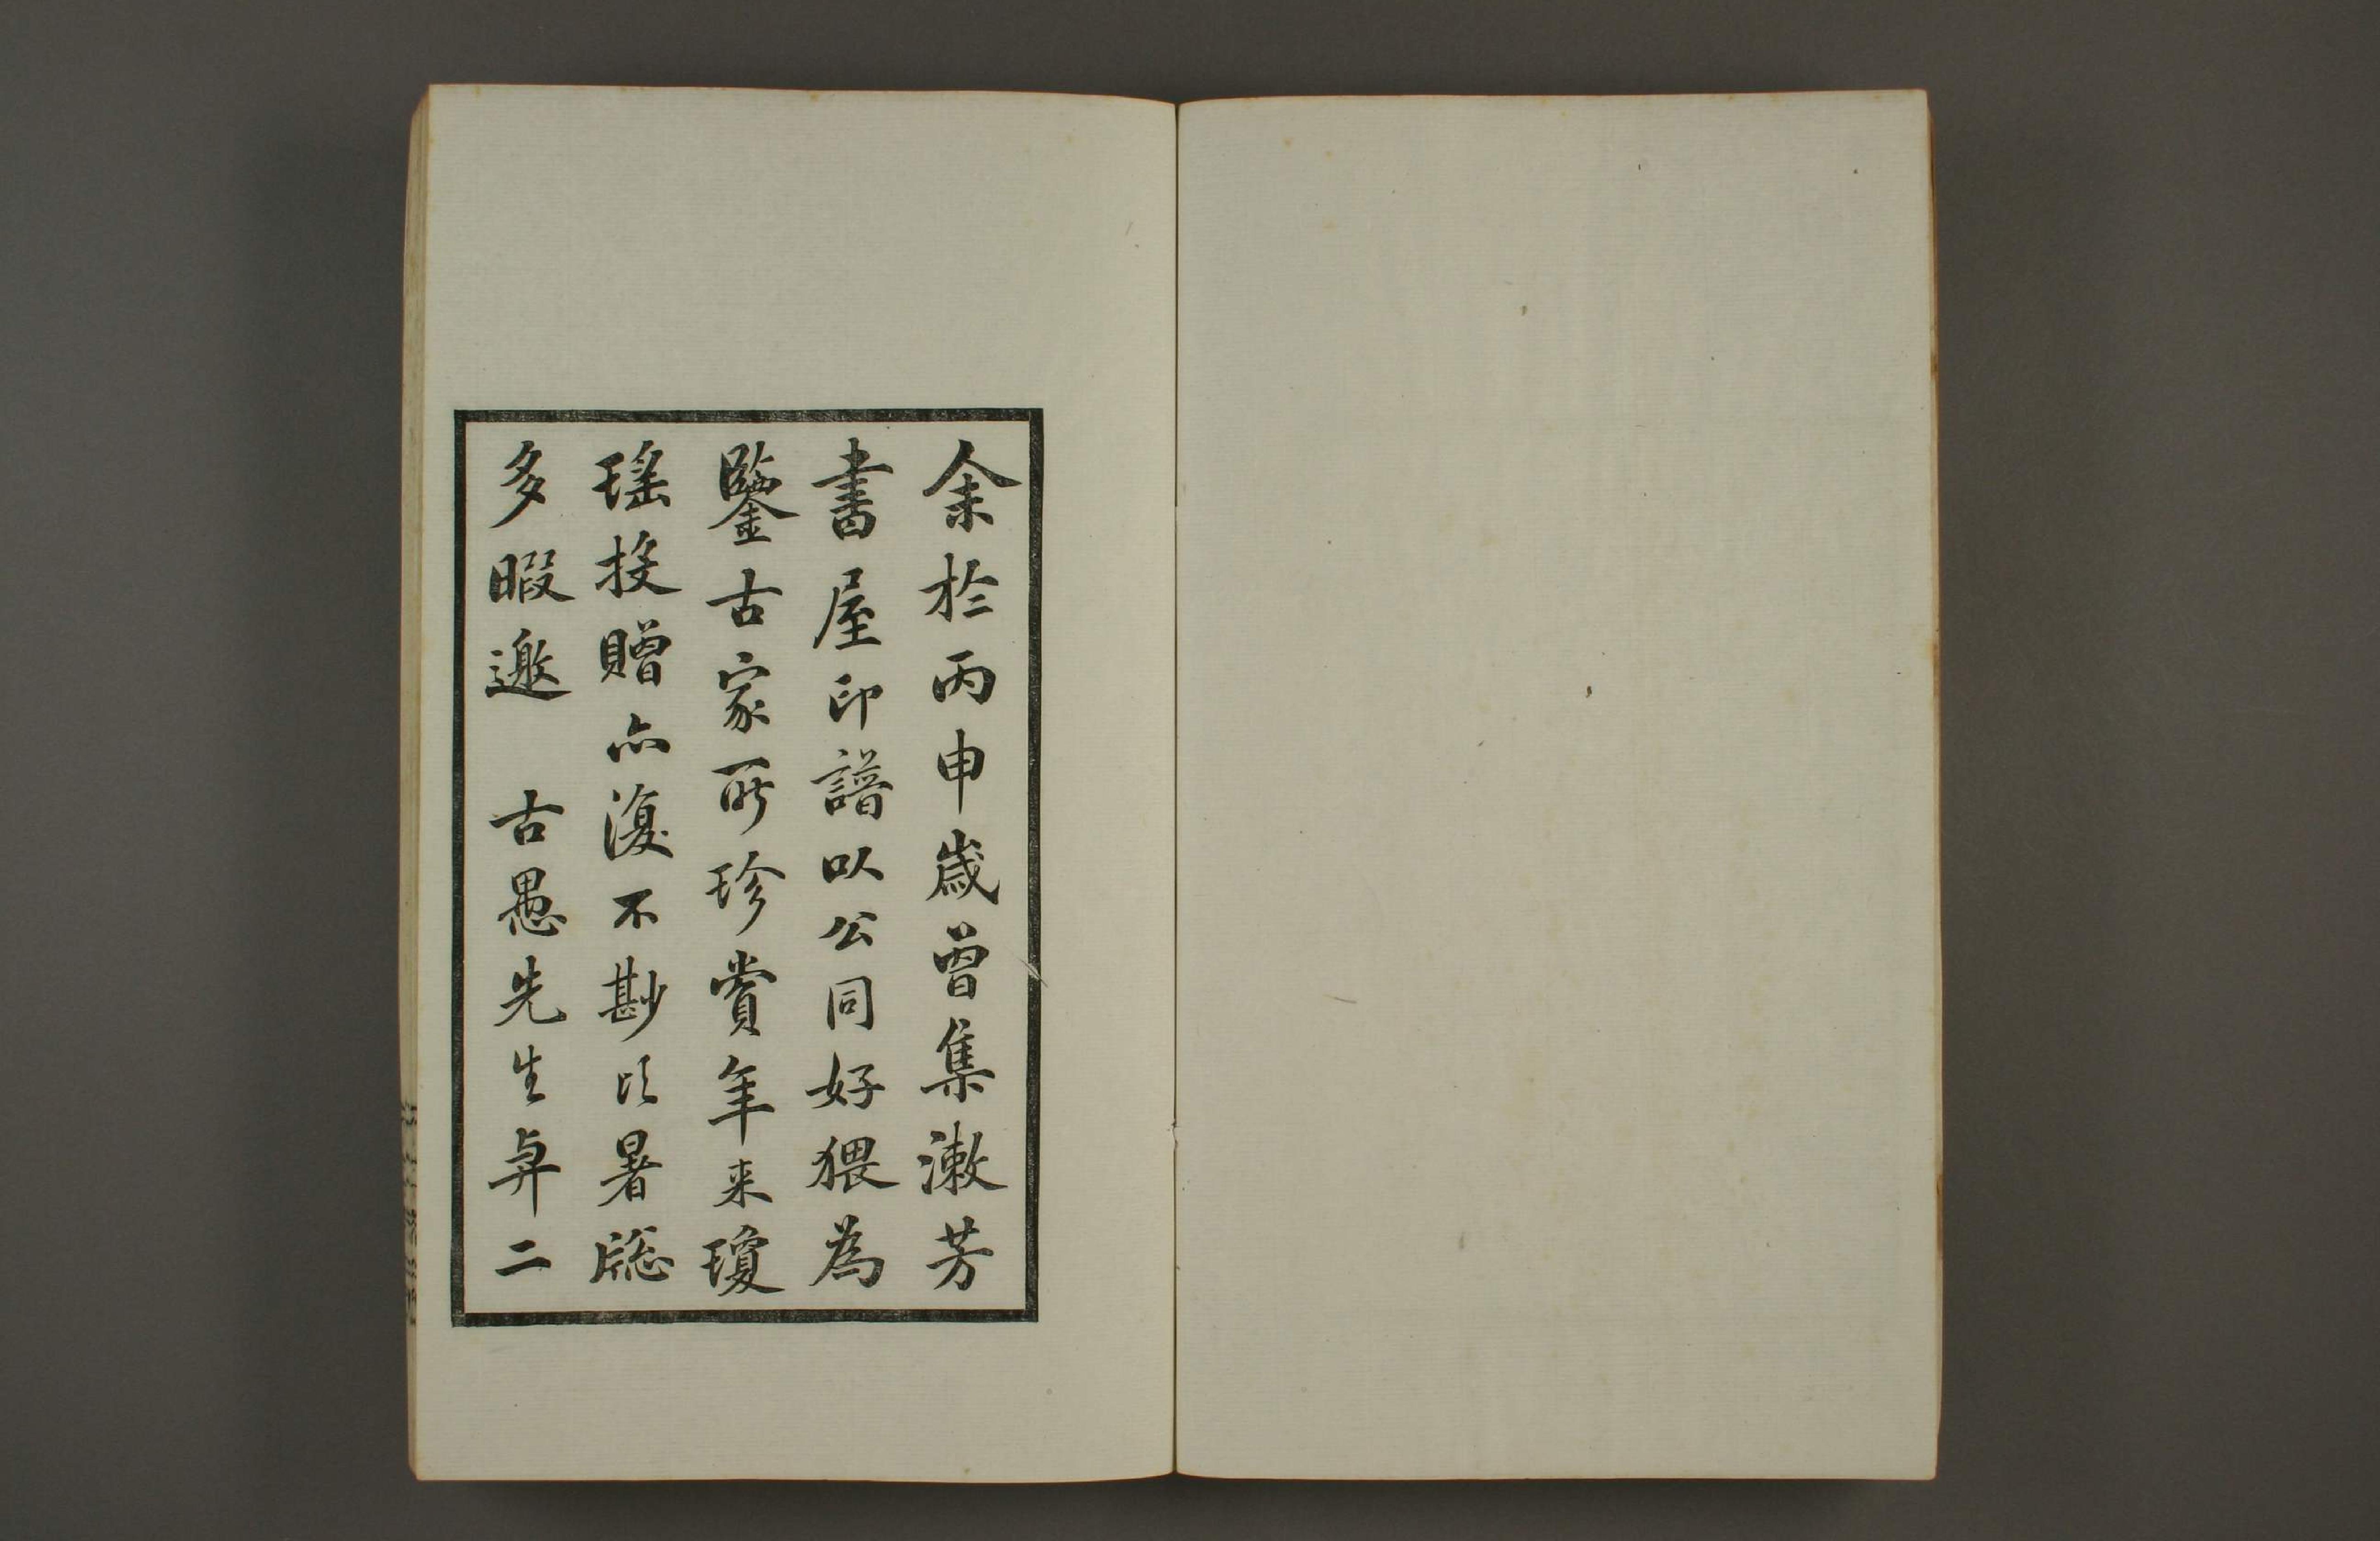 余於丙申歲曾集漱芳
書屋印譜以公同好猥為
鑒古家所珍賞年来瓊
瑶投贈亦復不尠頃暑牕
多暇邀　古愚先生弆二